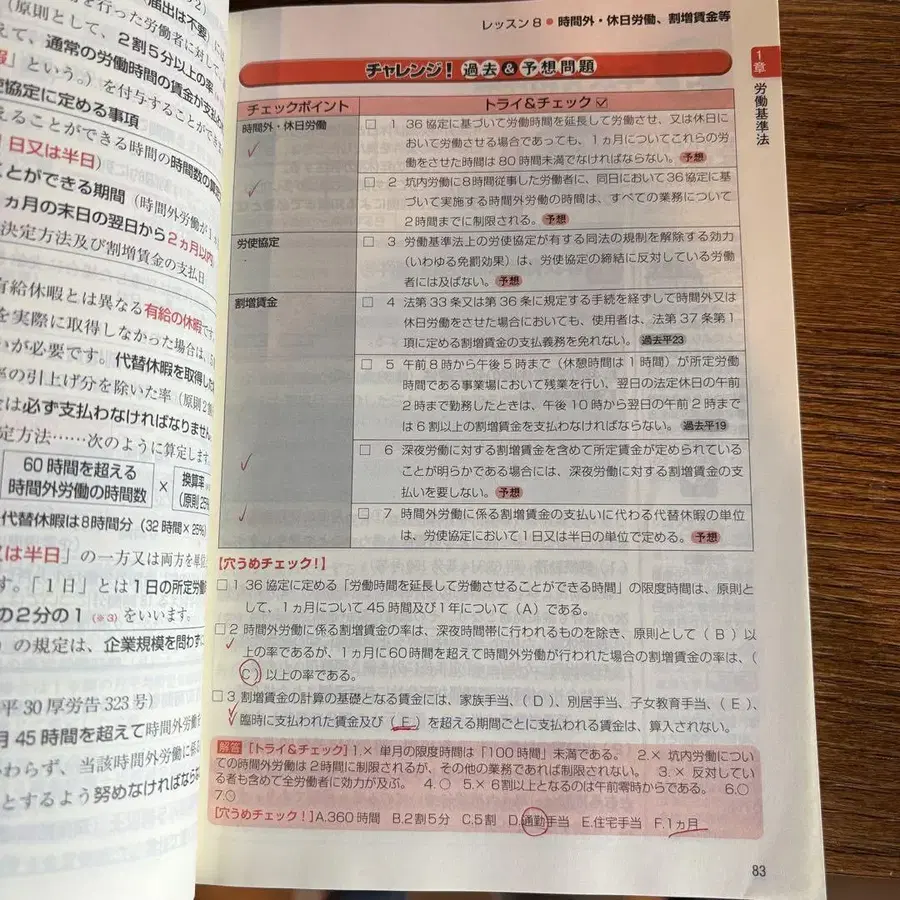 届出は不要」
行った労働者に対して
(原則として、2割5分以上の率
えて、通常の労働時間の賃金が支払わ
という。)を付与することができ
協定に定める事項
えることができる時間の時間数の算定
日又は半日)
とができる期間(時間外労働が1ヵ
ヵ月の末日の翌日から2ヵ月以内
決定方法及び割増賃金の支払日
有給休暇とは異なる有給の休暇です
を実際に取得しなかった場合は
いが必要です。代替休暇を取得した
率の引上げ分を除いた率(原則2割
金は必ず支払わなければなりません
定方法……次のように算定します
60時間を超える
時間外労働の時間数
×
換算率
(原則25%
代替休暇は8時間分(32時間×25%)
又は半日」の一方又は両方を単位
す。「1日」とは1日の所定労働
の2分の1(※3)をいいます。
の規定は、企業規模を問わず
平30厚労告323号)
月45時間を超えて時間外労働
わらず、当該時間外労働に係る
とするよう努めなければならない
レッスン8●時間外・休日労働、割増賃金等
1章 労働基準法
チャレンジ!過去&予想問題
チェックポイント
トライ&チェック☑
時間外・休日労働
□ 1 36協定に基づいて労働時間を延長して労働させ、又は休日に
おいて労働させる場合であっても、1ヵ月についてこれらの労
働をさせた時間は80時間未満でなければならない。予想
□ 2 坑内労働に8時間従事した労働者に、同日において36協定に基
づいて実施する時間外労働の時間は、すべての業務について
2時間までに制限される。予想
労使協定
□ 3 労働基準法上の労使協定が有する同法の規制を解除する効力
(いわゆる免罰効果)は、労使協定の締結に反対している労働
者には及ばない。予想
割増賃金
□ 4 法第33条又は第36条に規定する手続を経ずして時間外又は
休日労働をさせた場合においても、使用者は、法第37条第1
項に定める割増賃金の支払義務を免れない。過去平23
□ 5 午前8時から午後5時まで(休憩時間は1時間)が所定労働
時間である事業場において残業を行い、翌日の法定休日の午前
2時まで勤務したときは、午後10時から翌日の午前2時まで
は6割以上の割増賃金を支払わなければならない。過去平19
□ 6 深夜労働に対する割増賃金を含めて所定賃金が定められている
ことが明らかである場合には、深夜労働に対する割増賃金の支
払いを要しない。予想
□ 7 時間外労働に係る割増賃金の支払いに代わる代替休暇の単位
は、労使協定において1日又は半日の単位で定める。予想
【穴うめチェック!】
□ 1 36協定に定める「労働時間を延長して労働させることができる時間」の限度時間は、原則と
して、1ヵ月について45時間及び1年について(A)である。
□ 2 時間外労働に係る割増賃金の率は、深夜時間帯に行われるものを除き、原則として(B)以
上の率であるが、1ヵ月に60時間を超えて時間外労働が行われた場合の割増賃金の率は、(
C)以上の率である。
□ 3 割増賃金の計算の基礎となる賃金には、家族手当、(D)、別居手当、子女教育手当、(E)、
臨時に支払われた賃金及び(F)を超える期間ごとに支払われる賃金は、算入されない。
解答 【トライ&チェック】1.× 単月の限度時間は「100時間」未満である。 2.× 坑内労働につい
ての時間外労働は2時間に制限されるが、その他の業務であれば制限されない。 3.× 反対してい
る者も含めて全労働者に効力が及ぶ。 4.○ 5.× 6割以上となるのは午前零時からである。 6.○
7.○
【穴うめチェック!】A.360時間 B.2割5分 C.5割 D.通勤手当 E.住宅手当 F.1ヵ月
83